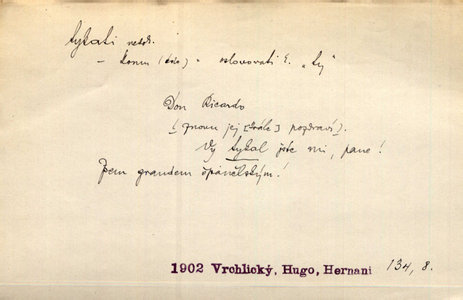 tykati nedok.
– komu (číc) = oslovovati č. „ty“
Don Ricardo
(znovu jej [krále] pozdraví).
Vy tykal jste mi, pane!
Jsem grandem španělským!
1902 Vrchlický, Hugo, Hernani 134, 8.